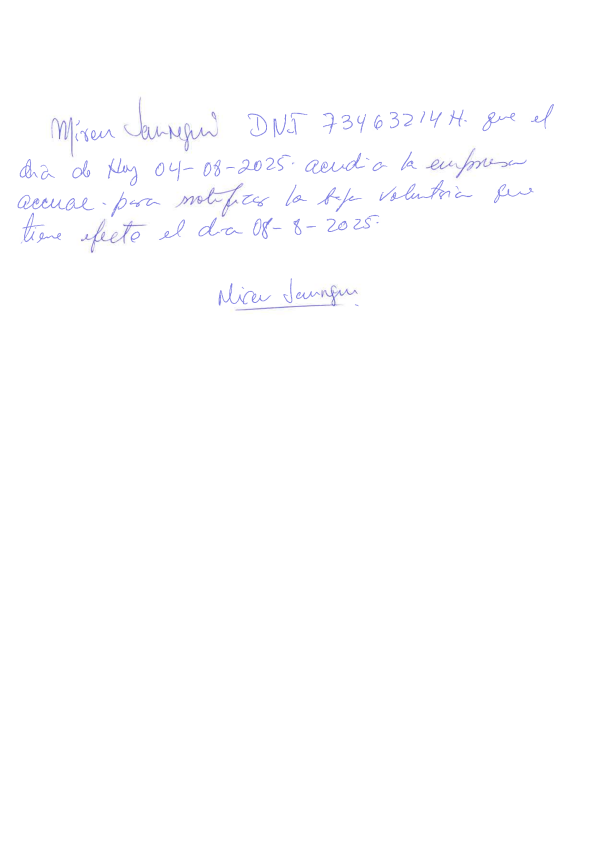 Miren Jauregui DNI 73463214H. que el
dia de Hoy 04-08-2025. acudi a la empresa
accuae. para notificar la baja voluntaria que
tiene efecto el dia 08-8-2025.
Miren Jauregui